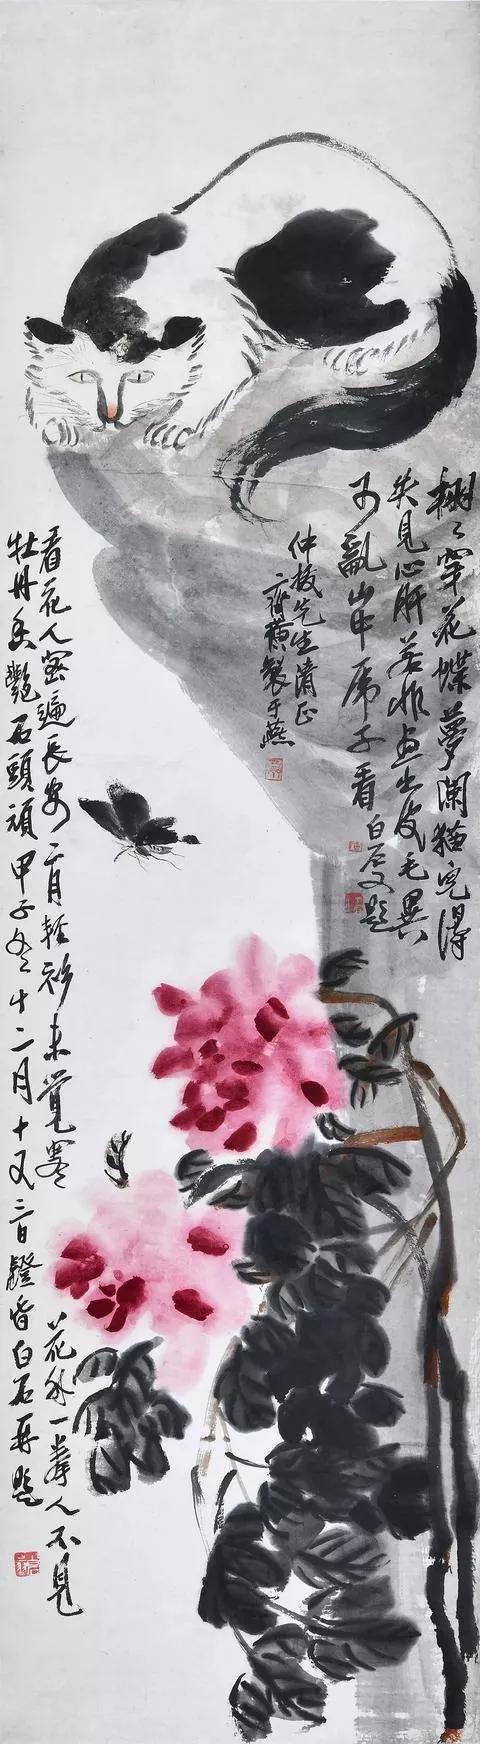 栩〻穿花蝶夢闌貓兒得
失見心肝若非畫出皮毛異
可亂山中虎子看 白石又題
仲 先生清正
齊璜製于燕
看花人 遍長安二月輕衫未覺寒 花外一拳人不見
牡丹香艷石頭頑 甲子冬十二月十又三日鐙昏白石再題